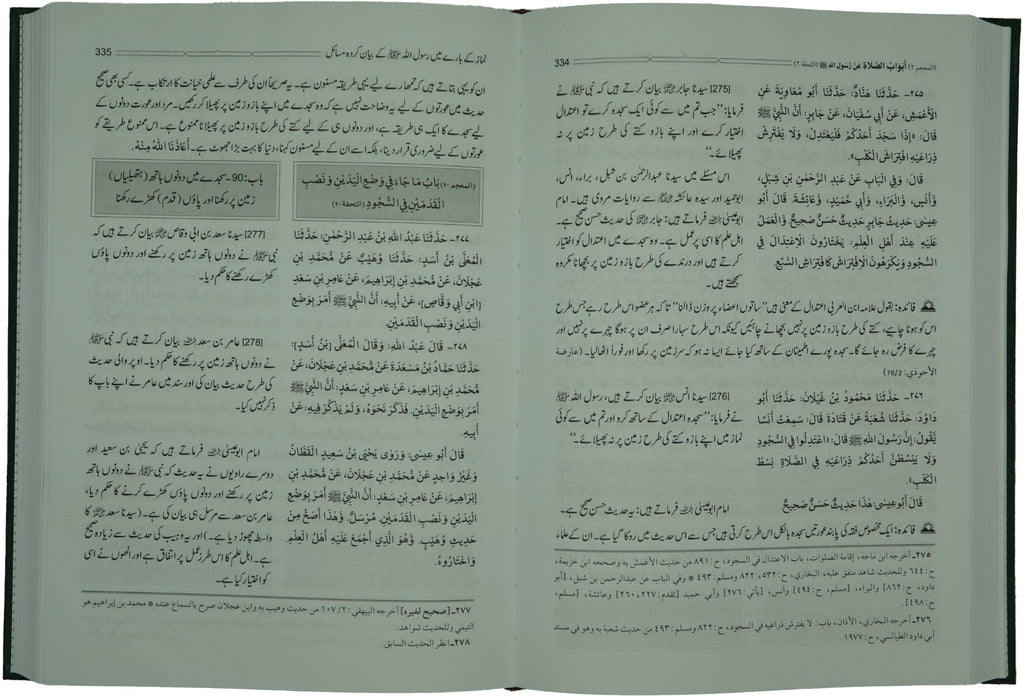 (المعجم ٢) أَبْوَابُ الصَّلَاةِ عَنْ رَسُولِ اللهِ ﷺ (التحفة ٢)
334
٢٧٥- حَدَّثَنَا هَنَّادٌ: حَدَّثَنَا أَبُو مُعَاوِيَةَ عَنِ
الْأَعْمَشِ، عَنْ أَبِي سُفْيَانَ، عَنْ جَابِرٍ: أَنَّ النَّبِيَّ ﷺ
قَالَ: «إِذَا سَجَدَ أَحَدُكُمْ فَلْيَعْتَدِلْ، وَلَا يَفْتَرِشْ
ذِرَاعَيْهِ افْتِرَاشَ الْكَلْبِ».
قَالَ: وَفِي الْبَابِ عَنْ عَبْدِ الرَّحْمٰنِ بْنِ شِبْلٍ،
وَأَنَسٍ، وَالْبَرَاءِ، وَأَبِي حُمَيْدٍ، وَعَائِشَةَ. قَالَ أَبُو
عِيسٰى: حَدِيثُ جَابِرٍ حَدِيثٌ حَسَنٌ صَحِيحٌ وَالْعَمَلُ
عَلَيْهِ عِنْدَ أَهْلِ الْعِلْمِ: يَخْتَارُونَ الِاعْتِدَالَ فِي
السُّجُودِ وَيَكْرَهُونَ الِافْتِرَاشَ كَافْتِرَاشِ السَّبُعِ.
[275] سیدنا جابر ؓ بیان کرتے ہیں کہ نبی ﷺ نے
فرمایا: ”جب تم میں سے کوئی ایک سجدہ کرے تو اعتدال
اختیار کرے اور اپنے بازو کتے کی طرح زمین پر نہ
پھیلائے۔“
اس مسئلے میں سیدنا عبدالرحمٰن بن شبل، براء، انس،
ابوحمید اور سیدہ عائشہ ؓ سے روایات مروی ہیں۔ امام
ابوعیسیٰ ؒ فرماتے ہیں: جابر ؓ کی حدیث حسن صحیح ہے۔
اہل علم کا اسی پر عمل ہے۔ وہ سجدے میں اعتدال کو اختیار
کرتے ہیں اور درندے کی طرح بازو زمین پر بچھانا مکروہ
سمجھتے ہیں۔
فائدہ: بقول علامہ ابن العربی اعتدال کے معنی ہیں ”ساتوں اعضاء پر وزن ڈالنا“ تاکہ ہر عضو اس طرح رہے جس طرح
اس کو ہونا چاہیے، کتے کی طرح بازو زمین پر نہیں بچھانے چاہئیں کیونکہ اس طرح سہارا صرف ان پر ہوگا چہرے پر نہیں اور
چہرے کا فرض رہ جائے گا۔ سجدہ پورے اطمینان کے ساتھ کیا جائے ایسا نہ ہو کہ سر زمین پر رکھا اور فوراً اٹھالیا۔ (عارضة
الأحوذي: 76/2)
٢٧٦- حَدَّثَنَا مَحْمُودُ بْنُ غَيْلَانَ: حَدَّثَنَا أَبُو
دَاوُدَ: حَدَّثَنَا شُعْبَةُ عَنْ قَتَادَةَ قَالَ: سَمِعْتُ أَنَسًا
يَقُولُ: إِنَّ رَسُولَ اللهِ ﷺ قَالَ: «اعْتَدِلُوا فِي السُّجُودِ
وَلَا يَبْسُطَنَّ أَحَدُكُمْ ذِرَاعَيْهِ فِي الصَّلَاةِ بَسْطَ
الْكَلْبِ».
قَالَ أَبُو عِيسٰى: هٰذَا حَدِيثٌ حَسَنٌ صَحِيحٌ
[276] سیدنا انس ؓ بیان کرتے ہیں، رسول اللہ ﷺ
نے فرمایا: ”سجدہ اعتدال کے ساتھ کرو اور تم میں سے کوئی
نماز میں اپنے بازو کتے کی طرح زمین پر نہ پھیلائے۔“
امام ابوعیسیٰ ؒ فرماتے ہیں: یہ حدیث حسن صحیح ہے۔
فائدہ: ایک مخصوص فقہ کی پابند عورتیں سجدہ بالکل اس طرح کرتی ہیں جس سے اس حدیث میں روکا گیا ہے۔ ان کے علماء
٢٧٥- أخرجه ابن ماجه، إقامة الصلوات، باب الاعتدال في السجود، ح: ٨٩١ من حديث الأعمش به وصححه ابن خزيمة،
ح: ٦٤٤ وللحديث شاهد متفق عليه، البخاري، ح: ٥٣٢، ٨٢٢ ومسلم: ٤٩٣ * وفي الباب عن عبدالرحمن بن شبل، [أبو
داود، ح: ٨٦٢] والبراء، [مسلم، ح: ٤٩٤] وأنس، [يأتي: ٢٧٦] وأبي حميد [تقدم: ٢٢٧، ٢٦٠] وعائشة، [مسلم،
ح: ٤٩٨].
٢٧٦- أخرجه البخاري، الأذان، باب: لا يفترش ذراعيه في السجود، ح: ٨٢٢ ومسلم: ٤٩٣ من حديث شعبة به وهو في مسند
أبي داود الطيالسي، ح: ١٩٧٧.
نماز کے بارے میں رسول اللہ ﷺ کے بیان کردہ مسائل
335
ان کو یہی بتاتے ہیں کہ تمھارے لیے یہی طریقہ مسنون ہے۔ یہ صریحاً ان کی طرف سے علمی خیانت کا ارتکاب ہے۔ کسی بھی صحیح
حدیث میں عورتوں کے لیے یہ وضاحت نہیں ہے کہ وہ سجدے میں اپنے بازو زمین پر پھیلا کر رکھیں۔ مرد اور عورت دونوں کے
لیے سجدے کا ایک ہی طریقہ ہے، اور دونوں ہی کے لیے کتے کی طرح بازو زمین پر پھیلانا ممنوع ہے۔ اس ممنوع طریقے کو
عورتوں کے لیے ضروری قرار دینا، بلکہ اسے ان کے لیے مسنون کہنا، دنیا کا بہت بڑا جھوٹ ہے۔ أَعَاذَنَا اللهُ مِنْهُ.
(المعجم ٩٠) بَابُ مَا جَاءَ فِي وَضْعِ الْيَدَيْنِ وَنَصْبِ
الْقَدَمَيْنِ فِي السُّجُودِ (التحفة ٩١)
باب: 90- سجدے میں دونوں ہاتھ (ہتھیلیاں)
زمین پر رکھنا اور پاؤں (قدم) کھڑے رکھنا
٢٧٧- حَدَّثَنَا عَبْدُ اللهِ بْنُ عَبْدِ الرَّحْمٰنِ: حَدَّثَنَا
الْمُعَلَّى بْنُ أَسَدٍ: حَدَّثَنَا وُهَيْبٌ عَنْ مُحَمَّدِ بْنِ
عَجْلَانَ، عَنْ مُحَمَّدِ بْنِ إِبْرَاهِيمَ، عَنْ عَامِرِ بْنِ سَعْدِ
[ابْنِ أَبِي وَقَّاصٍ]، عَنْ أَبِيهِ: أَنَّ النَّبِيَّ ﷺ أَمَرَ بِوَضْعِ
الْيَدَيْنِ وَنَصْبِ الْقَدَمَيْنِ.
[277] سیدنا سعد بن ابی وقاص ؓ بیان کرتے ہیں کہ
نبی ﷺ نے دونوں ہاتھ زمین پر رکھنے اور دونوں پاؤں
کھڑے رکھنے کا حکم دیا۔
٢٧٨- قَالَ عَبْدُ اللهِ: وَقَالَ الْمُعَلَّى [بْنُ أَسَدٍ]:
حَدَّثَنَا حَمَّادُ بْنُ مَسْعَدَةَ عَنْ مُحَمَّدِ بْنِ عَجْلَانَ، عَنْ
مُحَمَّدِ بْنِ إِبْرَاهِيمَ، عَنْ عَامِرِ بْنِ سَعْدٍ: أَنَّ النَّبِيَّ ﷺ
أَمَرَ بِوَضْعِ الْيَدَيْنِ. فَذَكَرَ نَحْوَهُ، وَلَمْ يَذْكُرْ فِيهِ: عَنْ
أَبِيهِ.
[278] عامر بن سعد ؒ بیان کرتے ہیں کہ نبی ﷺ
نے دونوں ہاتھ زمین پر رکھنے کا حکم دیا۔ اوپر والی حدیث
کی طرح حدیث بیان کی اور سند میں عامر نے اپنے باپ کا
ذکر نہیں کیا۔
قَالَ أَبُو عِيسٰى: وَرَوٰى يَحْيَى بْنُ سَعِيدٍ الْقَطَّانُ
وَغَيْرُ وَاحِدٍ عَنْ مُحَمَّدِ بْنِ عَجْلَانَ، عَنْ مُحَمَّدِ بْنِ
إِبْرَاهِيمَ، عَنْ عَامِرِ بْنِ سَعْدٍ: أَنَّ النَّبِيَّ ﷺ أَمَرَ بِوَضْعِ
الْيَدَيْنِ وَنَصْبِ الْقَدَمَيْنِ. مُرْسَلٌ. وَهٰذَا أَصَحُّ مِنْ
حَدِيثِ وُهَيْبٍ. وَهُوَ الَّذِي أَجْمَعَ عَلَيْهِ أَهْلُ الْعِلْمِ
وَاخْتَارُوهُ.
امام ابوعیسیٰ ؒ فرماتے ہیں کہ یحییٰ بن سعید اور
دوسرے راویوں نے یہ حدیث کہ نبی ﷺ نے دونوں ہاتھ
زمین پر رکھنے اور دونوں پاؤں کھڑے کرنے کا حکم دیا،
عامر بن سعد سے مرسل ہی بیان کی ہے۔ (سیدنا سعد کا
واسطہ چھوڑ دیا ہے۔) اور یہ وہیب کی حدیث سے زیادہ صحیح
ہے۔ اہل علم کا اس طرز عمل پر اتفاق ہے اور انھوں نے اسی
کو اختیار کیا ہے۔
٢٧٧- [صحيح لغيره] أخرجه البيهقي: ٢/ ١٠٧ من حديث وهيب به وابن عجلان صرح بالسماع عنده * محمد بن إبراهيم هو
التيمي وللحديث شواهد.
٢٧٨- انظر الحديث السابق.